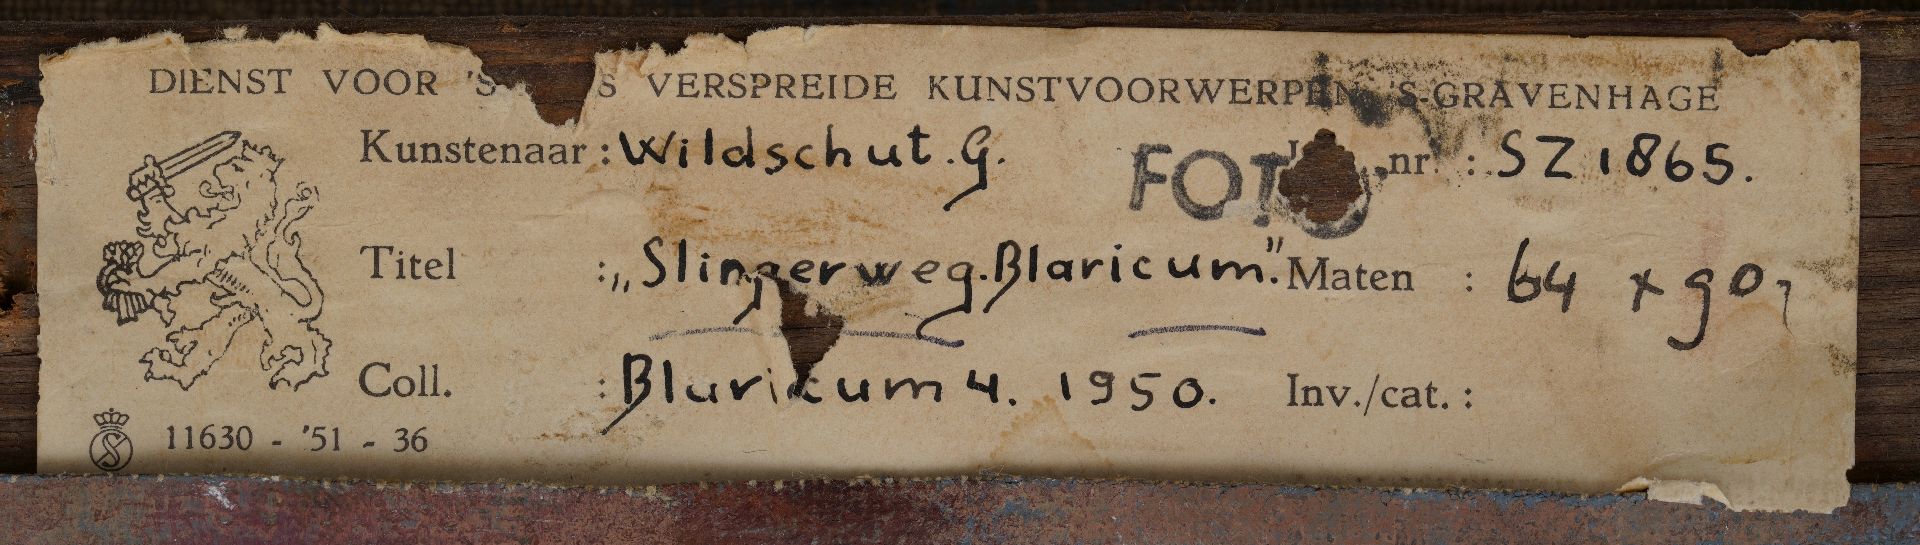 DIENST VOOR 'S VERSPREIDE KUNSTVOORWERPEN 'S-GRAVENHAGE
Kunstenaar : Wildschut. G. FOTO nr. : SZ 1865.
Titel : „Slingerweg. Blaricum”. Maten : 64 x 90,
Coll. : Blaricum 4. 1950. Inv./cat. :
S 11630 - '51 - 36